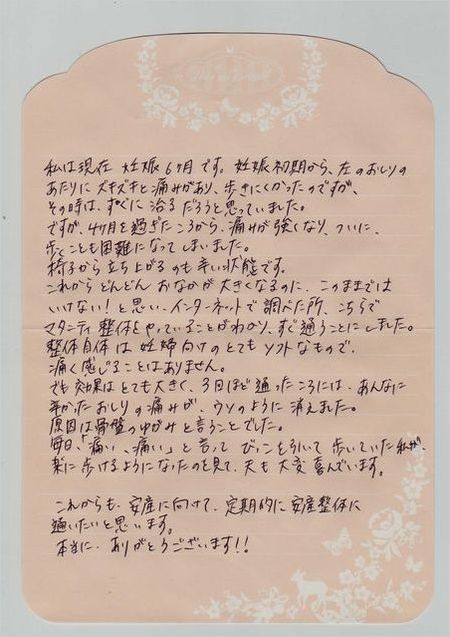 私は現在 妊娠6ヶ月です。妊娠初期から、左のおしりの
あたりにズキズキと痛みがあり、歩きにくかったのですが、
その時は、すぐに治るだろうと思っていました。
ですが、4ヶ月を過ぎたころから、痛みが強くなり、ついに、
歩くことも困難になってしまいました。
椅子から立ち上がるのも辛い状態です。
これからどんどんおなかが大きくなるのに、このままでは
いけない!と思い、インターネットで調べた所、こちらで
マタニティ整体をやっていることがわかり、すぐ通うことにしました。
整体自体は妊婦向けのとてもソフトなもので、
痛く感じることはありません。
でも効果はとても大きく、3日ほど通ったころには、あんなに
辛かったおしりの痛みが、ウソのように消えました。
原因は骨盤のゆがみと言うことでした。
毎日、「痛い、痛い」と言って びっこを引いて歩いていた私が、
楽に歩けるようになったのを見て、夫も大変喜んでいます。
これからも、安産に向けて、定期的に安産整体に
通いたいと思います。
本当に、ありがとうございます!!